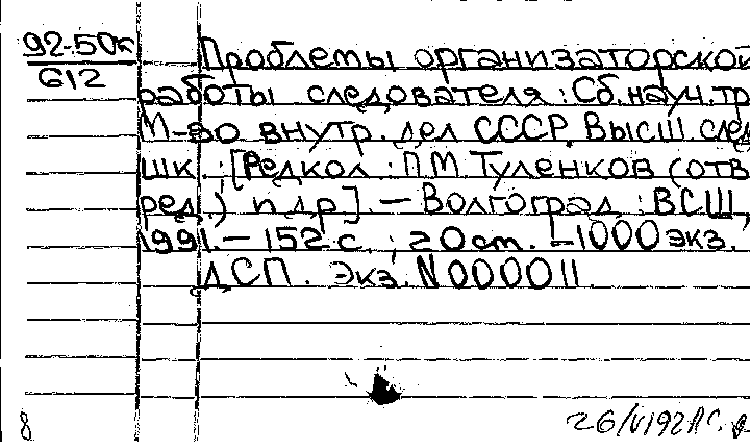 92-50к
612
Проблемы организаторской
работы следователя : Сб. науч. тр.
М-во внутр. дел СССР. Высш. след.
шк. ; [Редкол. : П М Туленков (отв.
ред.) и др.]. — Волгоград : ВСШ,
1991. — 152 с ; 20 см. — 1000 экз.
ДСП. Экз. N 000011.
8
26/V192